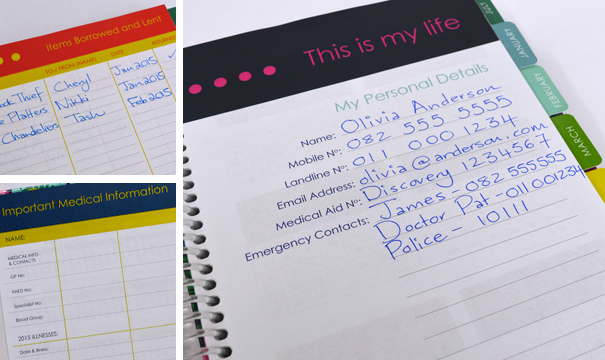 Items Borrowed and Lent
TO / FROM (NAME) DATE
Thief Cheryl Jan 2015
Platters Nikki Jan 2015
Chandeliers Tash Feb 2015
Important Medical Information
NAME:
MEDICAL INFO
& CONTACTS
GP No:
Specialist No:
Blood Group:
2015 ILLNESSES:
Date & Illness:
This is my life
My Personal Details
Name: Olivia Anderson
Mobile Nº: 082 555 5555
Landline Nº: 011 000 1234
Email Address: olivia@anderson.com
Medical Aid Nº: Discovery 1234567
Emergency Contacts: James - 082 555555
Doctor Pat - 011 001234
Police - 10111
JULY
JANUARY
FEBRUARY
MARCH